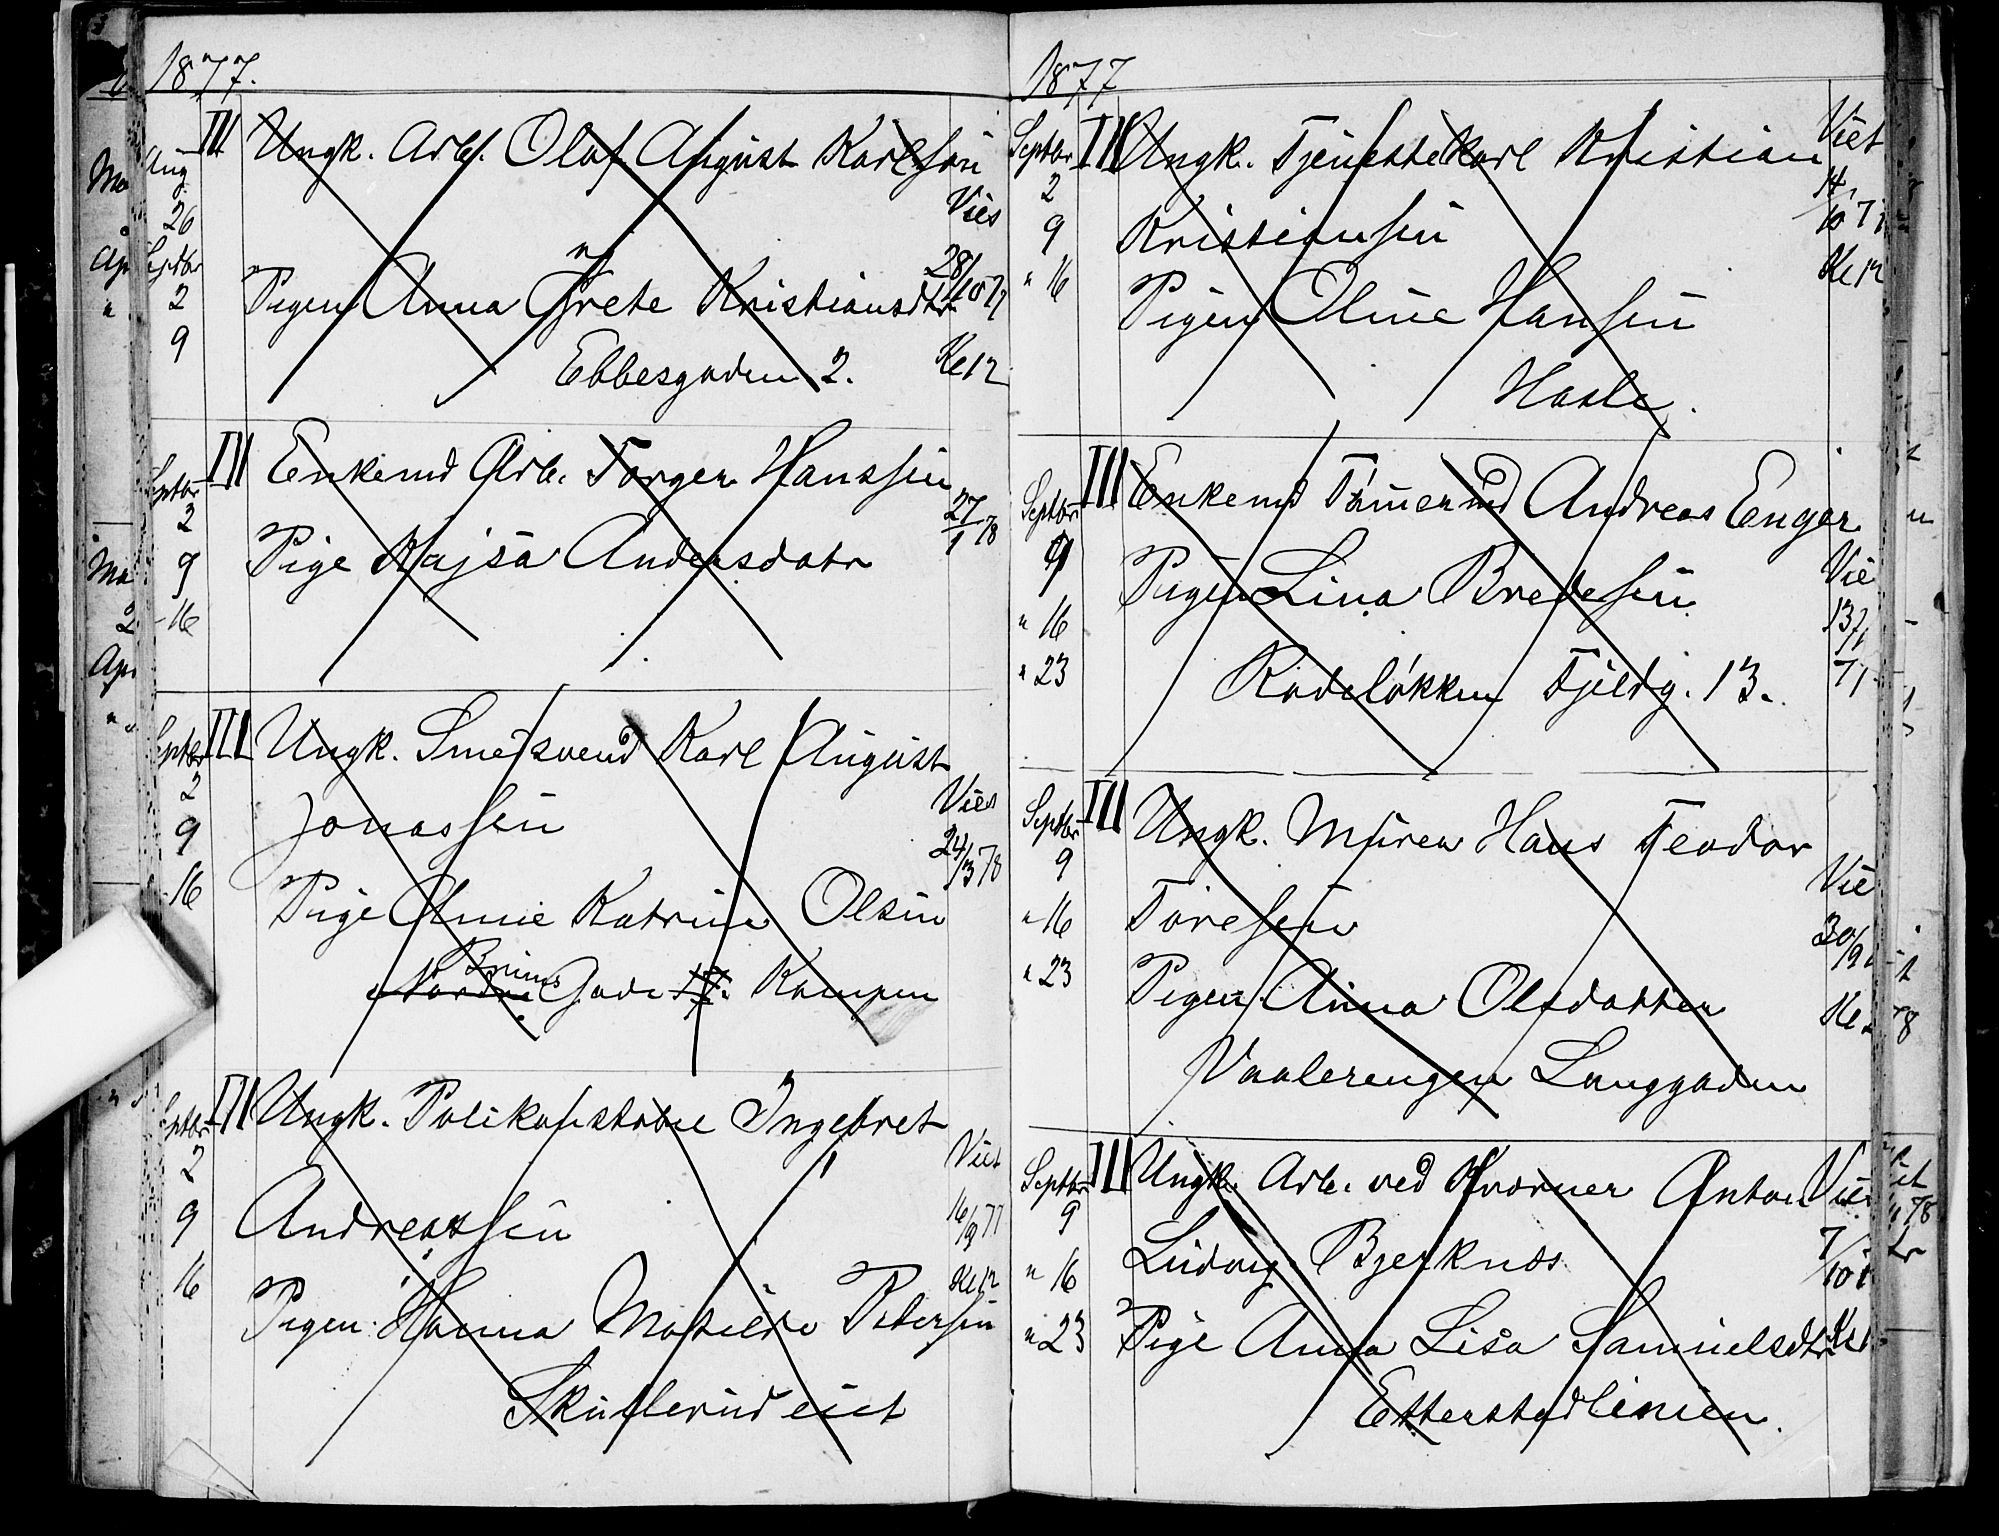 1877.
Aug. 26 Septbr 2 9
III Ungk. Arb. Olaf August Karlsen
Viet 28/10 77 Kl 12
Pigen Anna Grete Kristiansdtr
Ebbesgaden 2.
Septbr 2 9 - 16
III Enkemd Arb. Torger Hanssen
27/1 78
Pige Kajsa Andersdatr
Septbr 2 9 - 16
III Ungk. Smedsvend Karl August
Jonassen
Viet 24/3 78
Pige Oline Katrine Olsen
Bruns
Nordre Gade 17. Kampen
Septbr 2 9 16
III Ungk. Politikonstabel Ingebret
Andreassen
Viet 16/9 77 Kl 12
Pigen Hanna Matilde Petersen
Skullerud eiet
1877
Septbr 2 9 " 16
III Ungk. Tjenestekarl Kristian
Kristiansen
Viet 14/10 77 Kl 12
Pigen Oline Hansen
Hasle.
Septbr 9 " 16 " 23
III Enkemd Tømermd Andreas Enger
Pigen Lina Bredesen
Rodeløkken Fjeldg. 13.
Septbr 9 " 16 " 23
III Ungk. Murer Hans Teodor
Toresen
Vie 30/9
Pigen Anna Olsdatter
Vaalerengen Langgaden
Septbr 9 " 16 " 23
III Ungk. Arb. ved Kværner Anton
Ludvig Bjerknæs
7/10
Pige Anna Lisa Samuelsdtr
Etterstadlinien.